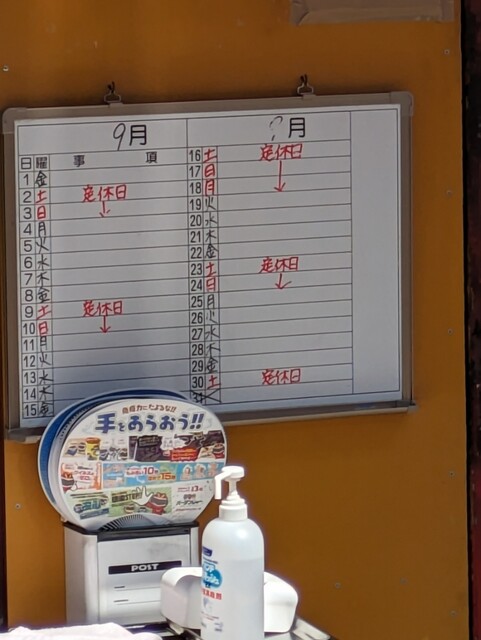 9月
?月
日 曜 事 項
1 金
2 土 定休日
3 日 ↓
4 月
5 火
6 水
7 木
8 金
9 土 定休日
10 日 ↓
11 月
12 火
13 水
14 木
15 金
16 土 定休日
17 日
18 月 ↓
19 火
20 水
21 木
22 金
23 土 定休日
24 日 ↓
25 月
26 火
27 水
28 木
29 金
30 土 定休日
31
免疫力にたよるな!!
手をあらおう!!
POST